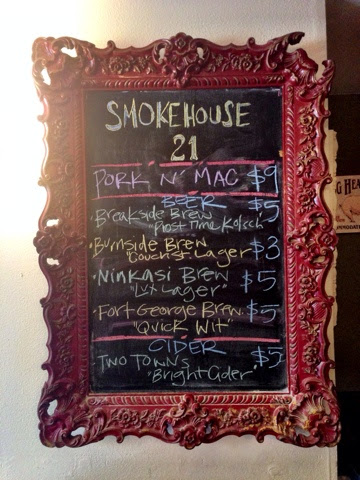 SMOKEHOUSE
21
PORK 'N' MAC $9
BEER
• Breakside Brew $5
"Post Time Kolsch"
• Burnside Brew $3
"Couch st Lager"
• Ninkasi Brew $5
"Lux Lager"
• Fort George Brew $5
"Quick Wit"
CIDER
• Two Towns $5
"Bright Cider"